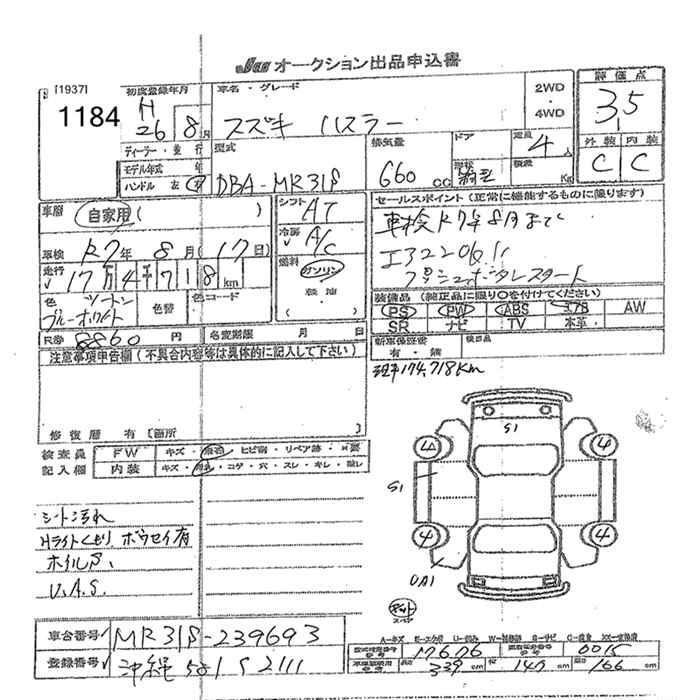 JU オークション出品申込書
[1937]
1184
初度登録年月
H
26 8月
車名・グレード
スズキ ハスラー
2WD
・
4WD
評価点
3.5
ディーラー・並行
モデル年式 年
ハンドル 左 右
型式
DBA-MR31S
排気量
660 cc
ドア
形状
定員
4人
積載
Kg
外装 内装
C C
車歴
自家用 ( )
シフト
AT
セールスポイント (正常に機能するものに限ります)
車検 R7年8月まで
車検 R7年 8月(17日)
冷房
A/C
I32206
プッシュボタンスタート
走行
17万4千718km
燃料
ガソリン
軽油
( )
色 ツートン
ブルーホワイト
色替
色コード
装備品 (純正品に限り○を付けてください)
PS PW ABS エアB AW
SR ナビ TV 本革
R券 8860 円
名変期限 月 日
新車保証書
有・無
検査員
注意事項申告欄(不具合内容等は具体的に記入して下さい)
現車174,718Km
修復歴 有 [箇所
検査員
記入欄
FW キズ・飛石・ヒビ割・リペア跡・要
内装 キズ・汚れ・コゲ・穴・スレ・キレ・
S1
S1
4
4
4
UA1
シート汚れ
Hライトくもり ボウセイ有
ホイルS.
U.A.S.
スペア
A-キズ E-エクボ U-凹み W-補修跡 S-サビ C-腐食 XX-交換済
車台番号 MR31S-239693
型式指定番号 17676
類別区分番号 0015
登録番号 沖縄 581 S 2111
長さ 339 cm 幅 147 cm 高さ 166 cm